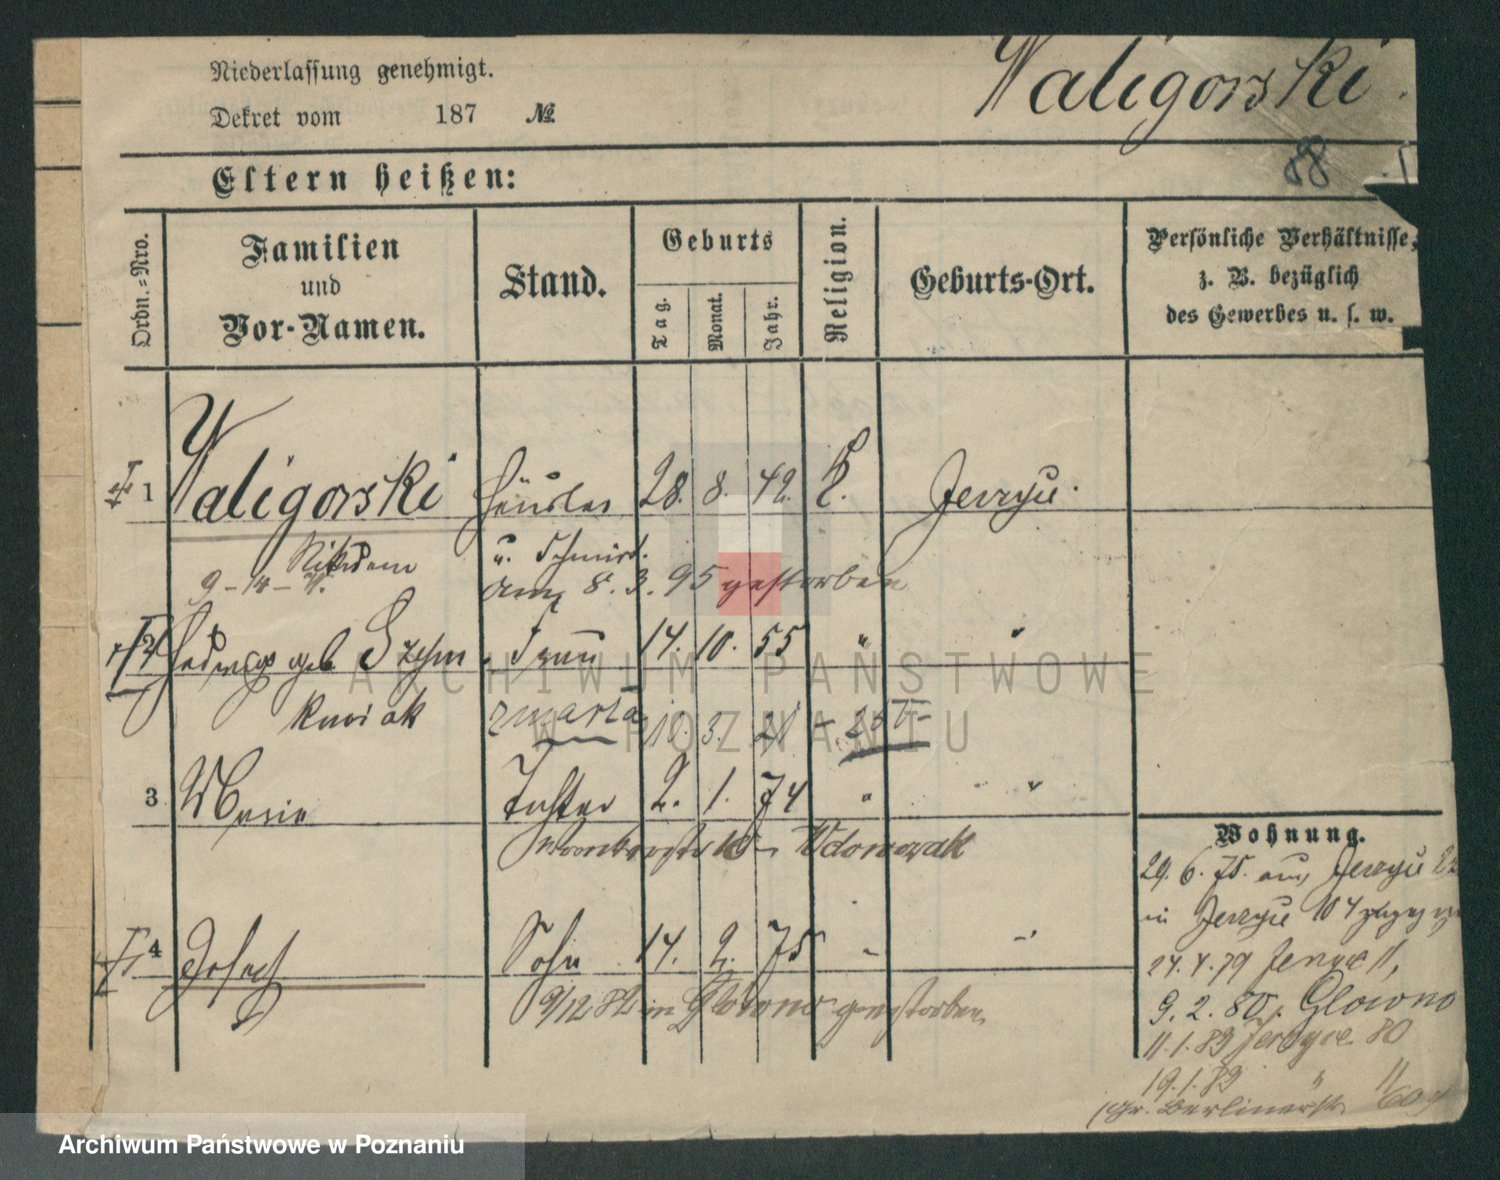 Niederlassung genehmigt.
Dekret vom 187 №
Waligorski
88
Eltern heißen:
Ordn.=Nro.
Familien
und
Vor-Namen.
Stand.
Geburts
Tag.
Monat.
Jahr.
Religion.
Geburts-Ort.
Persönliche Verhältnisse,
z. B. bezüglich
des Gewerbes u. s. w.
1 Waligorski Häusler 28. 8. 42. K. Jerzyce.
Nikodem u. Schmied.
am 8. 3. 95 gestorben
2 Hedwig geb Szym Frau 14. 10. 55 " "
kowiak zmarła 11. 3. 21
3 Marie Tochter 2. 1. 74 " "
Wdowczak
4 Josef Sohn 14. 2. 75 " "
9/12 82 in Glowno gestorben
Wohnung.
29. 6. 75. aus Jerzyce
in Jerzyce 104
24. 4. 79 Jerzyce 11,
9. 2. 80. Glowno
11. 1. 83 Jerzyce 80
19. 1. 83 " 11
Gr. Berlinerstr 60
ARCHIWUM PAŃSTWOWE
W POZNANIU
Archiwum Państwowe w Poznaniu